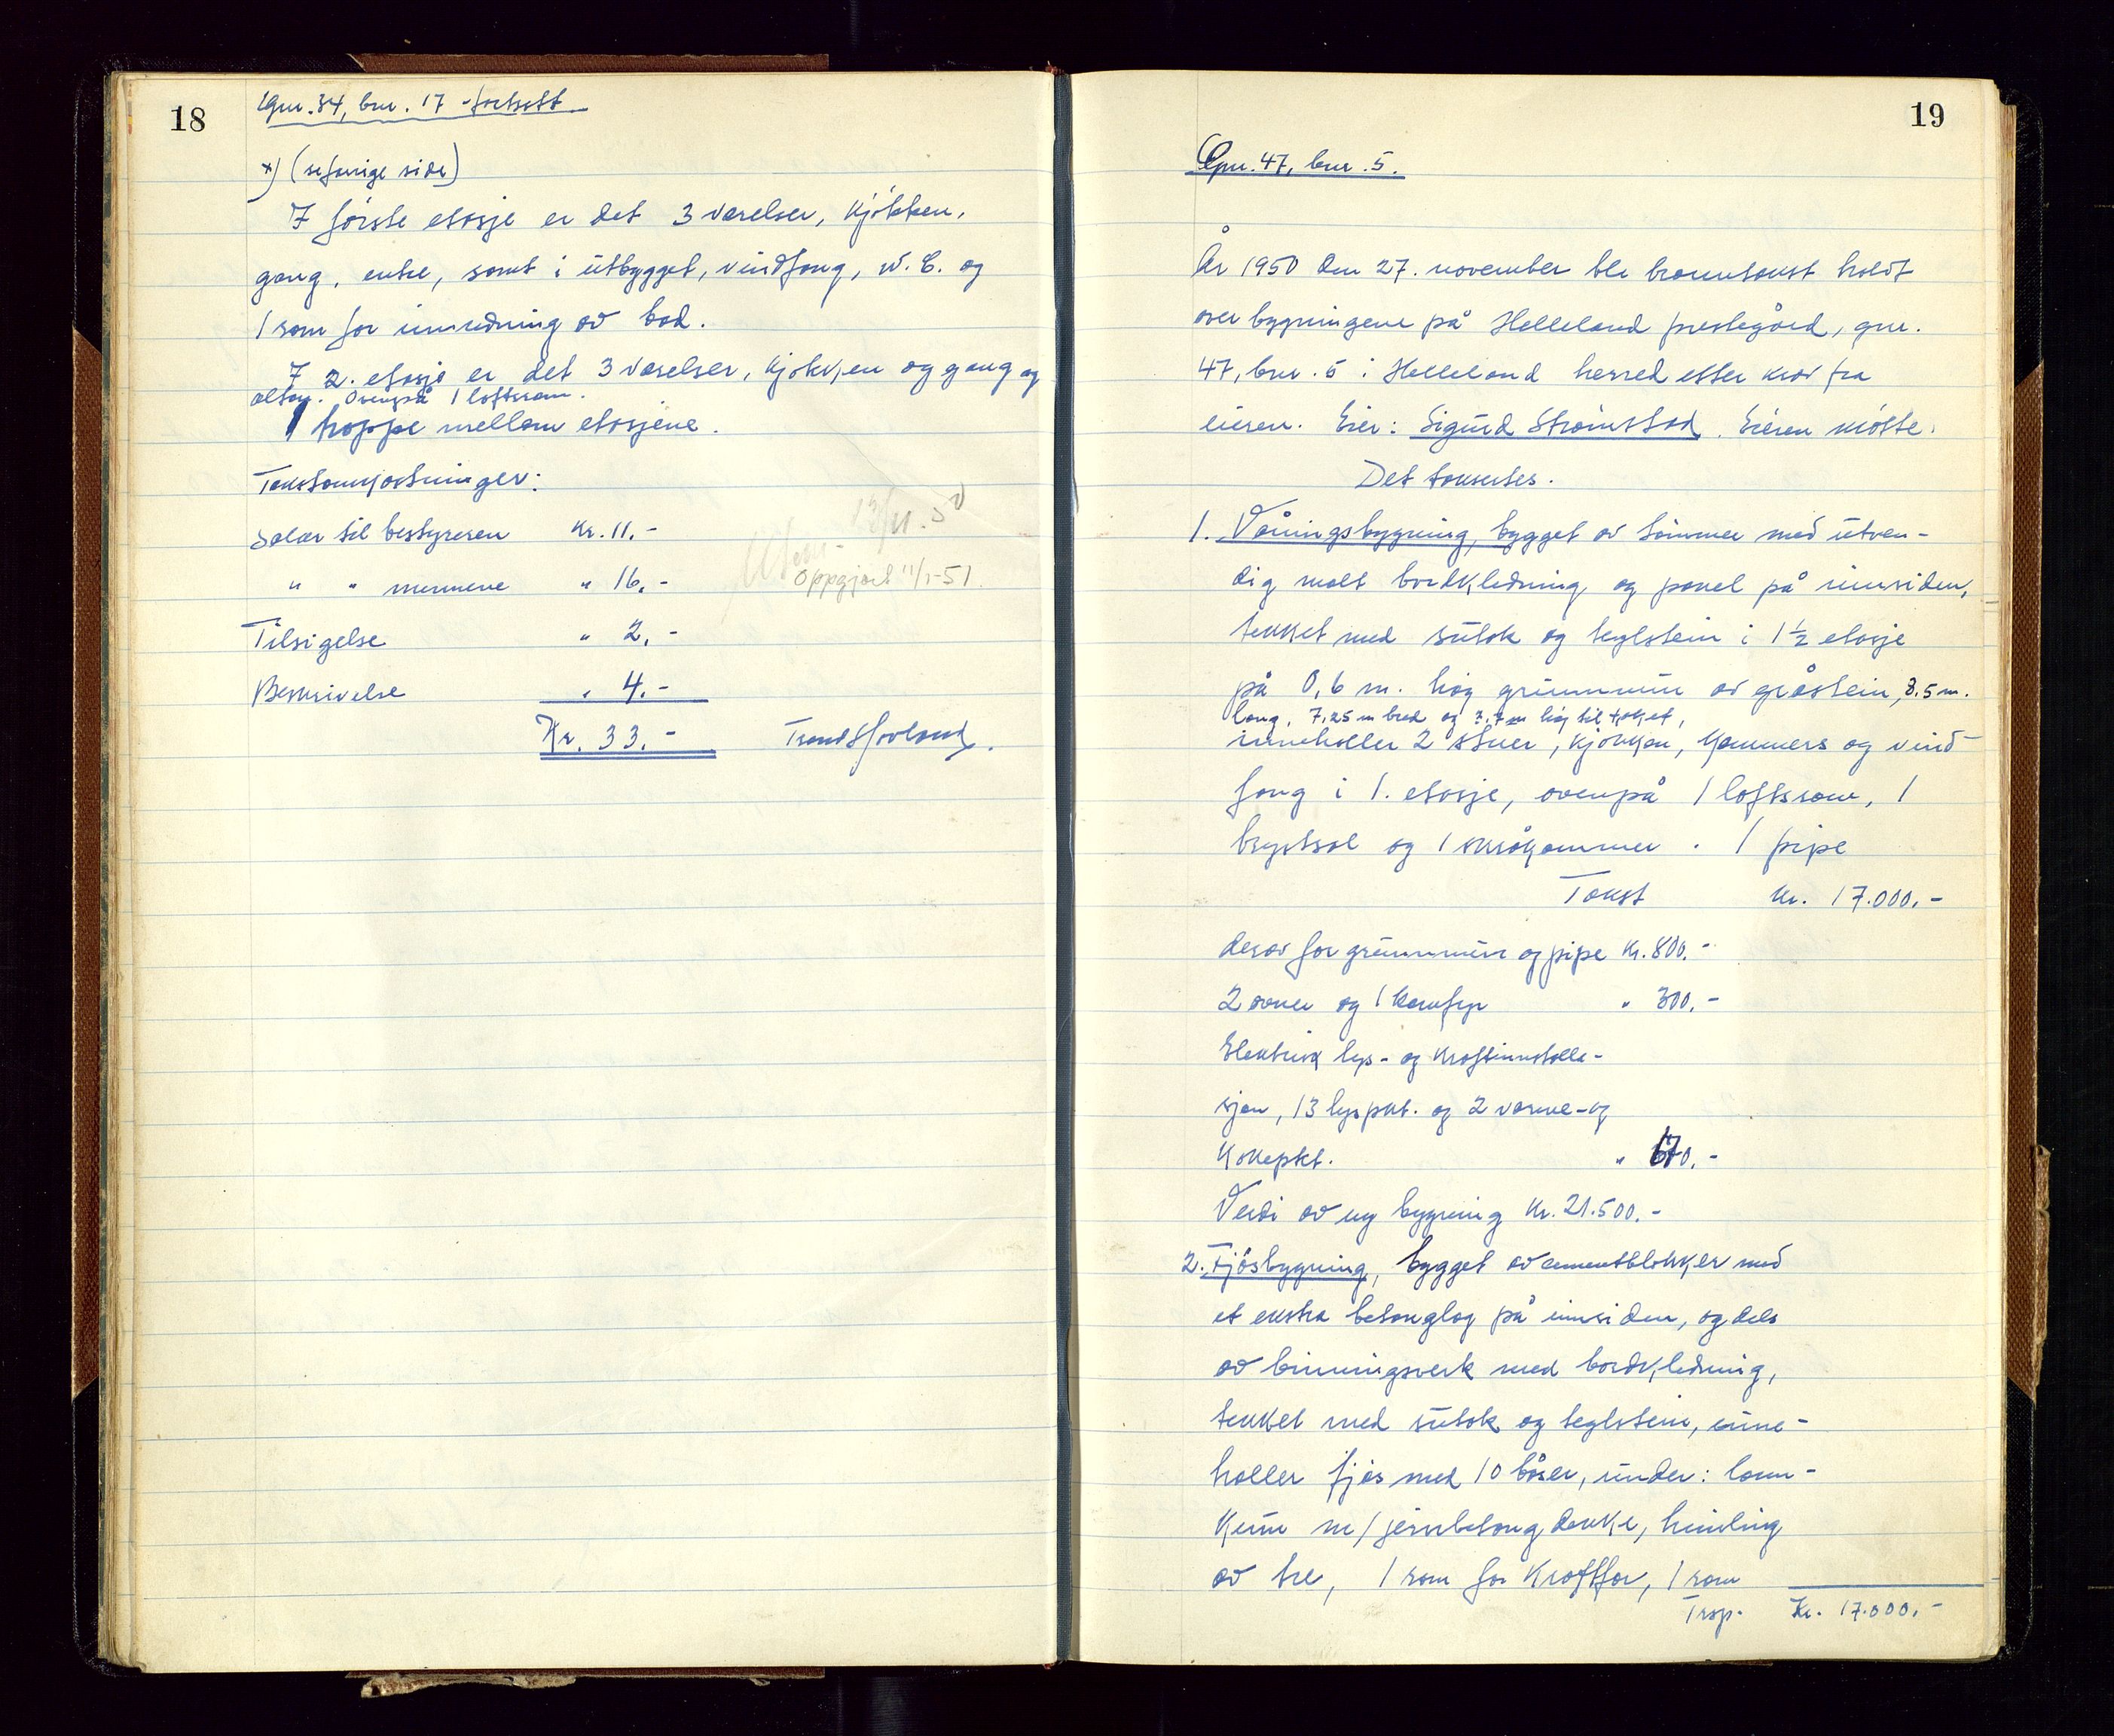 18
Gnr. 34, bnr. 17 - fortsatt
x) (se forrige side)
I første etasje er det 3 værelser, kjøkken,
gang, entre, samt i utbygget, vindfang, W.C. og
1 rom for innredning av bad.
I 2. etasje er det 3 værelser, kjøkken og gang og
altan. Ovenpå 1 loftsrom.
1 trappe mellom etasjene.
Takstomkostninger:
Salær til bestyreren Kr. 11.-
" " mennene " 16.-
Tilsigelse " 2.-
Beskrivelse " 4.-
Kr. 33.-
13/11.50
Oppgjort 11/1-51.
19
Gnr. 47, bnr. 5.
År 1950 den 27. november ble branntakst holdt
over bygningene på Helleland prestegård, gnr.
47, bnr. 5 i Helleland herred etter krav fra
eieren. Eier: Sigurd Strømstad. Eieren møtte.
Det takseres.
1. Våningsbygning, bygget av tømmer med utven-
dig malt bordkledning og panel på innsiden,
tekket med sutak og teglstein i 1 1/2 etasje
på 0,6 m. høg grunnmur av gråstein, 8.5 m.
lang, 7,25 m bred og 3,7 m høg til taket,
inneholler 2 stuer, kjøkken, kammers og vind-
fang i 1. etasje, ovenpå 1 loftsrom, 1
brystsal og 1 skråkammer. 1 pipe
Takst Kr. 17.000.-
derav for grunnmur og pipe Kr. 800.-
2 ovner og 1 komfyr " 300.-
Elektrisk lys- og kraftinnstalla-
sjon, 13 lyspkt. og 2 varme- og
kokepkt. "
Verdi av ny bygning Kr. 21.500.-
2. Fjøsbygning, bygget av cementblokker med
et ekstra betonglag på innsiden, og dels
av binningsverk med bordkledning,
tekket med sutak og teglstein, inne-
holler fjøs med 10 båser, under: lann-
kum m/jernbetong dekke, himling
av tre, 1 rom for kraftfor, 1 rom
Trsp. Kr. 17.000.-